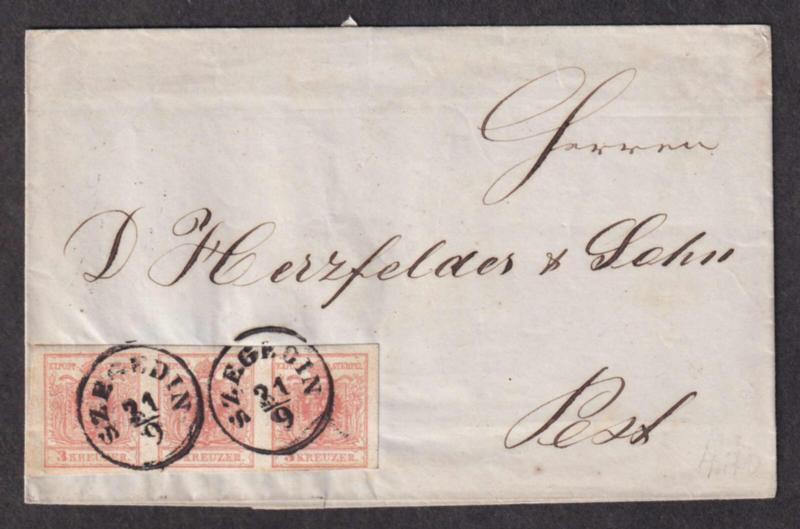 Herren
D Herzfelder & Sohn
Pest
SZEGEDIN
21/9
SZEGEDIN
21/9
STEMPEL
3 KREUZER
KREUZER
3 KREUZER